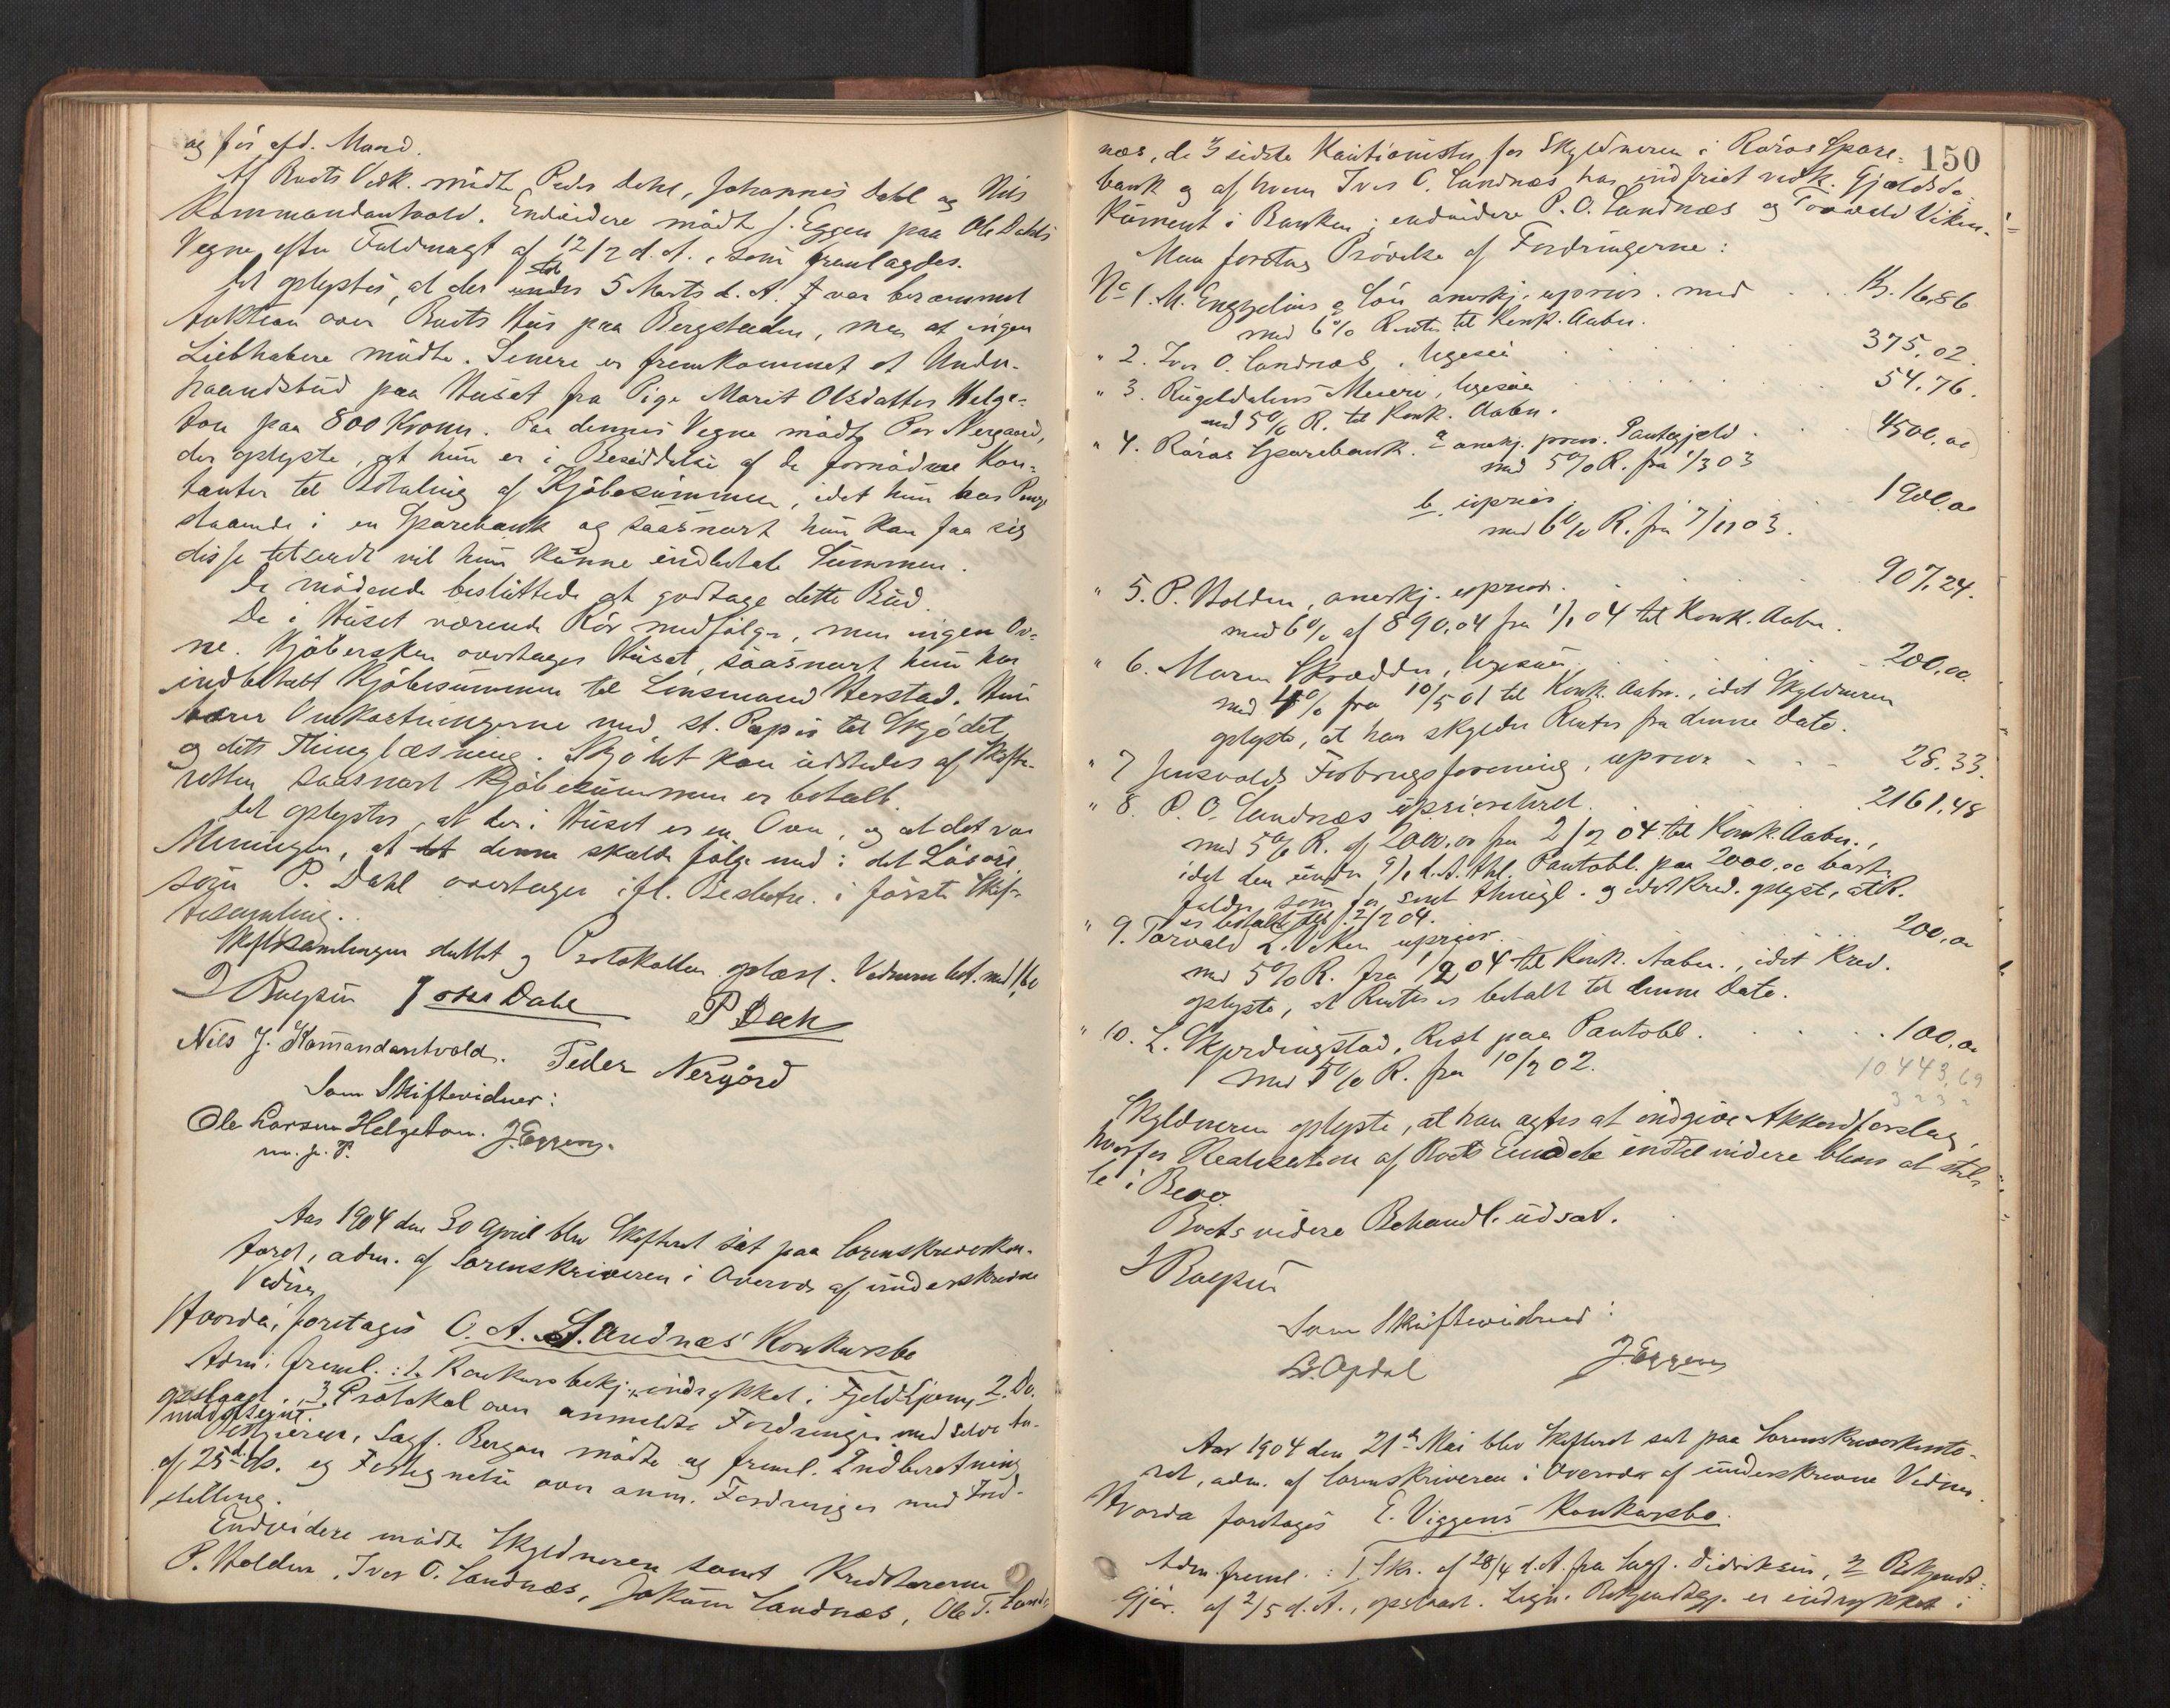 og for afd. Mand.
Af Boets Vedk. mødte Peder Dahl, Johannes Dahl og Nils
Kommandantvold. Endvidere mødte J. Eggen paa Ole Dahls
Vegne efter Fuldmagt af 12/2 d. A., som fremlagdes.
Det oplystes, at der under 5 Marts d. A. var berammet
Auktion over Boets Hus paa Bergstaden, men at ingen
Liebhabere mødte. Senere er fremkommet et Under-
haandsbud paa Huset fra Pige Marit Olsdatter Helge-
ton paa 800 Kroner. Paa dennes Vegne mødte Per Nergaard,
der oplyste, at hun er i Besiddelse af de fornødne Kon-
tanter til Betaling af Kjøbesummen, idet hun har Penge
staaende i en Sparebank og saasnart hun kan faa sig
disse tilsendt vil hun kunne indbetale Summen.
De mødende besluttede at godtage dette Bud.
De i Huset værende Rør medfølger, men ingen Ov-
ne. Kjøbersken overtager Huset, saasnart hun har
indbetalt Kjøbesummen til Lensmand Herstad. Hun
bærer Omkostningerne med st. Papir til Skjødet
og dets Thinglæsning. Skjødet kan udstedes af Skifte-
retten, saasnart Kjøbesummen er betalt.
Det oplystes, at der i Huset er en Ovn, og at det var
Meningen, at denne skulde følge med i det Løsøre
som P. Dahl overtager ifl. Beslutn. i første Skif-
tesamling.
Skiftesamlingen sluttet og Protokollen oplæst. Vidnerne bet. med 1,60
Johs Dahl P Dahl
Nils J. Komandantvold. Peder Nergård
Som Skiftevidner:
Ole Larsen Helgeton. J. Eggen.
m. p. P.
Aar 1904 den 30 April blev Skifteret sat paa Sorenskriverkon-
toret, adm. af Sorenskriveren i Overvær af underskrevne
Vidner
Hvorda foretages O. A. Sandnæs' Konkursbo
Adm. freml.: 1. Konkursbekj. indrykket i Fjeldljom, 2. Do.
opslaaet. 3. Protokol over anmeldte Fordringer med selve An-
meldelserne.
Bestyreren, Sagf. Bergan mødte og freml. Indberetning
af 25d ds. og Fortegnelse over anm. Fordringer med Ind-
stilling.
Endvidere mødte Skyldneren samt Kreditorerne
P. Holden, Iver O. Sandnæs, Jokum Sandnæs, Ole T. Sand-
150
næs, de 3 sidste Kautionister for Skyldneren i Røros Spare-
bank og af hvem Iver O. Sandnæs har indfriet vedk. Gjældsdo-
kument i Banken; endvidere P. O. Sandnæs og Torvald Viken.
Man foretog Prøvelse af Fordringerne:
No 1. M. Engzelius & Søn anerkj. uprior. med . . Kr. 16.86
med 6% Renter til Konk. Aabn.
" 2. Iver O. Sandnæs, ligesaa . . . 375.02.
" 3. Rugeldalens Meieri, ligesaa . . . 54.76.
med 5% R. til Konk. Aabn.
" 4. Røros Sparebank. a anerkj. prior. Pantegjæld . . (4500.00)
med 5% R. fra 1/3 03
b. uprior. . . 1900.00
med 6% R. fra 7/11 03.
" 5. P. Holden, anerkj. uprior. . . . 907.24.
med 6% af 890.04 fra 1/1 04 til Konk. Aabn.
" 6. Maren Skrædder, ligesaa . . . 200.00.
med 4% fra 10/5 01 til Konk. Aabn., idet Skyldneren
oplyste, at han skylder Renter fra denne Dato.
" 7 Jensvolds Forbrugsforening, uprior. . . . 28.33.
" 8. P. O. Sandnæs uprioriteret . . 2161.48
med 5% R. af 2000.00 fra 2/2 04 til Konk. Aabn.,
idet den under 9/1 d. A. thl. Pantobl. paa 2000.00 bort-
falder som for sent thingl. og idet Kred. oplyste, at R.
er betalt til 2/2 04.
" 9. Torvald L. Viken uprior. . . . 200.00
med 5% R. fra 1/2 04 til Konk. Aabn., idet Kred.
oplyste, at Renter er betalt til denne Dato.
" 10. L. Skjerdingstad, Rest paa Pantobl. . . . 100.00
med 5% R. fra 10/2 02.
10443,69
Skyldneren oplyste, at han agter at indgive Akkordforslag,
hvorfor Realisation af Boets Eiendele indtil videre blev at stil-
le i Bero.
Boets videre Behandl. udsat.
Som Skiftevidner:
B. Opdal J. Eggen
Aar 1904 den 21de Mai blev Skifteret sat paa Sorenskriverkonto-
ret, adm. af Sorenskriveren i Overvær af underskrevne Vidner.
Hvorda foretages E. Viggens Konkursbo.
Adm. freml.: 1 Skr. af 28/4 d. A. fra Sagf. Didriksen, 2 Bekjendt-
gjør. af 2/5 d. A., opslaaet. Lign. Bekjendtgj. er indrykket i